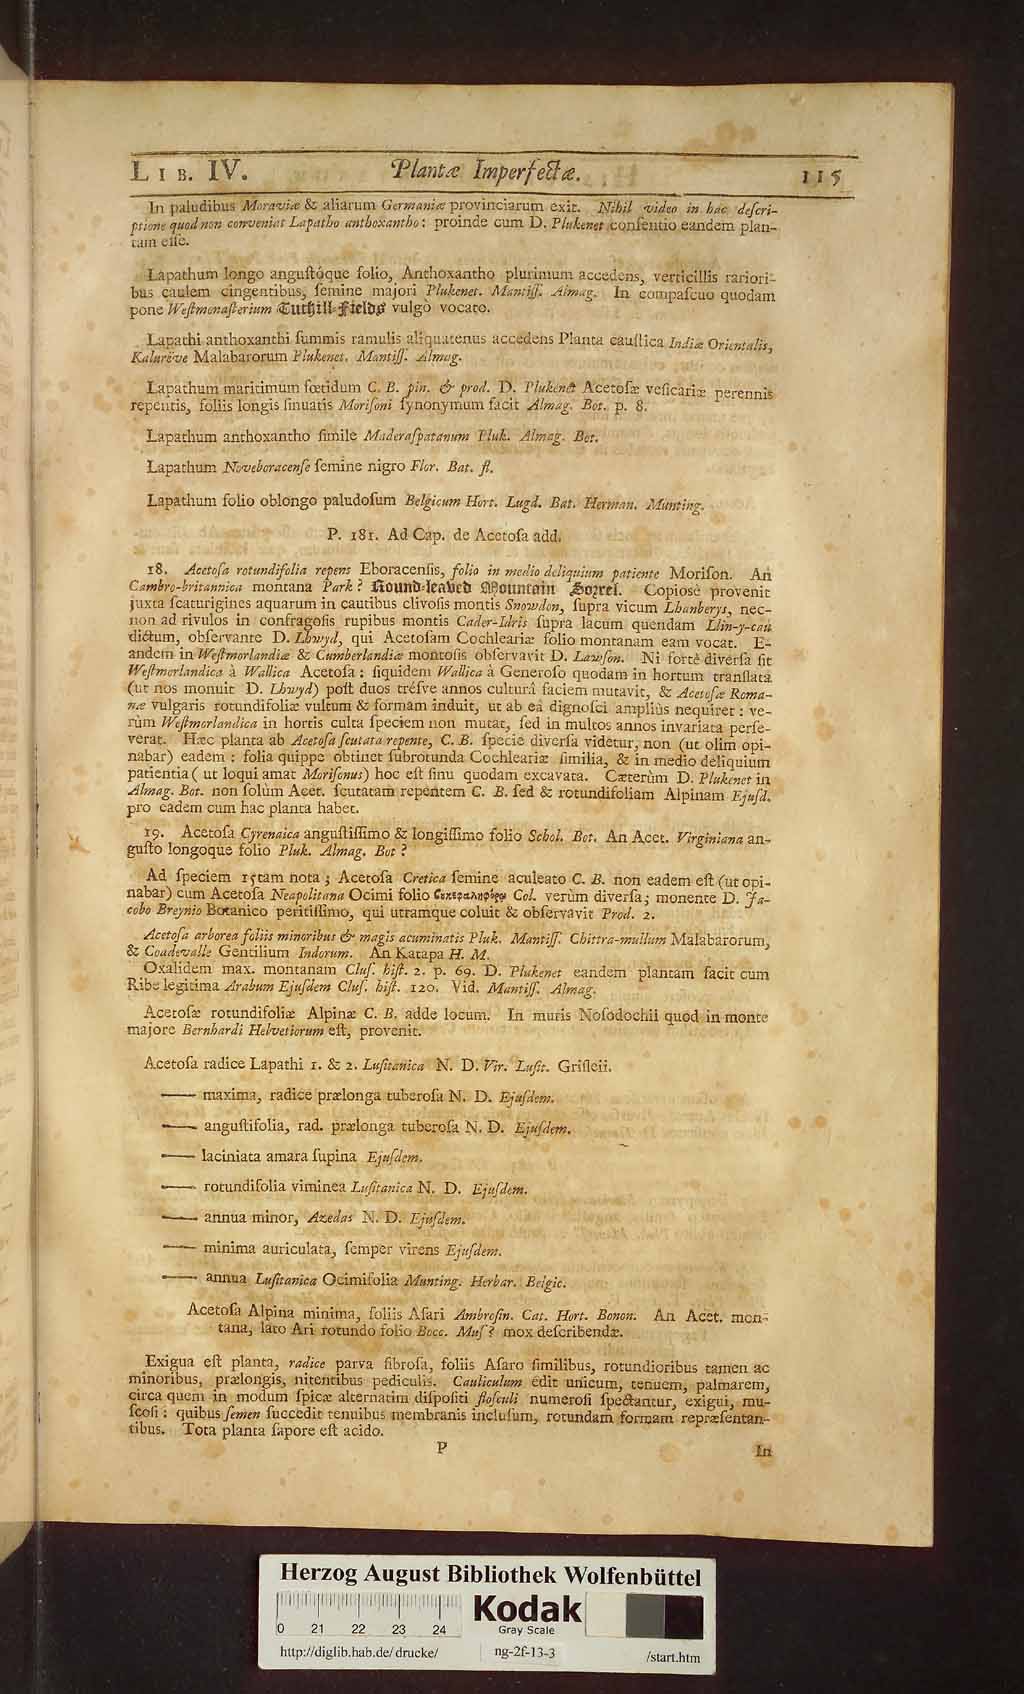 LIB. IV. Plantæ Imperfectæ. 115
In paludibus Moraviæ & aliarum Germaniæ provinciarum exit. Nihil video in hac deſcri-
ptione quod non conveniat Lapatho anthoxantho: proinde cum D. Plukenet conſentio eandem plan-
tam eſſe.
Lapathum longo anguſtóque folio, Anthoxantho plurimum accedens, verticillis rariori-
bus caulem cingentibus, ſemine majori Plukenet. Mantiſſ. Almag. In compaſcuo quodam
pone Weſtmonaſterium Tuthill-Fields vulgò vocato.
Lapathi anthoxanthi ſummis ramulis aliquatenus accedens Planta cauſtica Indiæ Orientalis,
Kalureve Malabarorum Plukenet. Mantiſſ. Almag.
Lapathum maritimum fœtidum C. B. pin. & prod. D. Plukenet Acetoſæ veſicariæ perennis
repentis, foliis longis ſinuatis Moriſoni ſynonymum facit Almag. Bot. p. 8.
Lapathum anthoxantho ſimile Maderaſpatanum Pluk. Almag. Bot.
Lapathum Noveboracenſe ſemine nigro Flor. Bat. fl.
Lapathum folio oblongo paludoſum Belgicum Hort. Lugd. Bat. Herman. Munting.
P. 181. Ad Cap. de Acetoſa add.
18. Acetoſa rotundifolia repens Eboracenſis, folio in medio deliquium patiente Moriſon. An
Cambro-britannica montana Park? Round-leaved Mountain Sorrel. Copiosè provenit
juxta ſcaturigines aquarum in cautibus clivoſis montis Snowdon, ſupra vicum Lhanberys, nec-
non ad rivulos in confragoſis rupibus montis Cader-Idris ſupra lacum quendam Llin-y-cau
dictum, obſervante D. Lhwyd, qui Acetoſam Cochleariæ folio montanam eam vocat. E-
andem in Weſtmorlandiæ & Cumberlandiæ montoſis obſervavit D. Lawſon. Ni fortè diverſa ſit
Weſtmorlandica à Wallica Acetoſa: ſiquidem Wallica à Generoſo quodam in hortum tranſlata
(ut nos monuit D. Lhwyd) poſt duos tréſve annos culturâ faciem mutavit, & Acetoſæ Roma-
næ vulgaris rotundifoliæ vultum & formam induit, ut ab eâ dignoſci ampliùs nequiret: ve-
rùm Weſtmorlandica in hortis culta ſpeciem non mutat, ſed in multos annos invariata perſe-
verat. Hæc planta ab Acetoſa ſcutata repente, C. B. ſpecie diverſa videtur, non (ut olim opi-
nabar) eadem: folia quippe obtinet ſubrotunda Cochleariæ ſimilia, & in medio deliquium
patientia (ut loqui amat Moriſonus) hoc eſt ſinu quodam excavata. Cæterùm D. Plukenet in
Almag. Bot. non ſolùm Acet. ſcutatam repentem C. B. ſed & rotundifoliam Alpinam Ejuſd.
pro eadem cum hac planta habet.
19. Acetoſa Cyrenaica anguſtiſſimo & longiſſimo folio Schol. Bot. An Acet. Virginiana an-
guſto longoque folio Pluk. Almag. Bot?
Ad ſpeciem 15tam nota; Acetoſa Cretica ſemine aculeato C. B. non eadem eſt (ut opi-
nabar) cum Acetoſa Neapolitana Ocimi folio Col. verùm diverſa; monente D. Ja-
cobo Breynio Botanico peritiſſimo, qui utramque coluit & obſervavit Prod. 2.
Acetoſa arborea foliis minoribus & magis acuminatis Pluk. Mantiſſ. Chittra-mullum Malabarorum,
& Coadevalle Gentilium Indorum. An Katapa H. M.
Oxalidem max. montanam Cluſ. hiſt. 2. p. 69. D. Plukenet eandem plantam facit cum
Ribe legitima Arabum Ejuſdem Cluſ. hiſt. 120. Vid. Mantiſſ. Almag.
Acetoſæ rotundifoliæ Alpinæ C. B. adde locum. In muris Noſodochii quod in monte
majore Bernhardi Helvetiorum eſt, provenit.
Acetoſa radice Lapathi 1. & 2. Luſitanica N. D. Vir. Luſit. Griſleii.
—— maxima, radice prælonga tuberoſa N. D. Ejuſdem.
—— anguſtifolia, rad. prælonga tuberoſa N. D. Ejuſdem.
—— laciniata amara ſupina Ejuſdem.
—— rotundifolia viminea Luſitanica N. D. Ejuſdem.
—— annua minor, Azedas N. D. Ejuſdem.
—— minima auriculata, ſemper virens Ejuſdem.
—— annua Luſitanica Ocimifolia Munting. Herbar. Belgic.
Acetoſa Alpina minima, foliis Aſari Ambroſin. Cat. Hort. Bonon. An Acet. mon-
tana, lato Ari rotundo folio Bocc. Muſ? mox deſcribendæ.
Exigua eſt planta, radice parva fibroſa, foliis Aſaro ſimilibus, rotundioribus tamen ac
minoribus, prælongis, nitentibus pediculis. Cauliculum edit unicum, tenuem, palmarem,
circa quem in modum ſpicæ alternatim diſpoſiti floſculi numeroſi ſpectantur, exigui, mu-
ſcoſi: quibus ſemen ſuccedit tenuibus membranis incluſum, rotundam formam repræſentan-
tibus. Tota planta ſapore eſt acido.
P In
Herzog August Bibliothek Wolfenbüttel
0 21 22 23 24
Kodak
Gray Scale
http://diglib.hab.de/drucke/ ng-2f-13-3 /start.htm